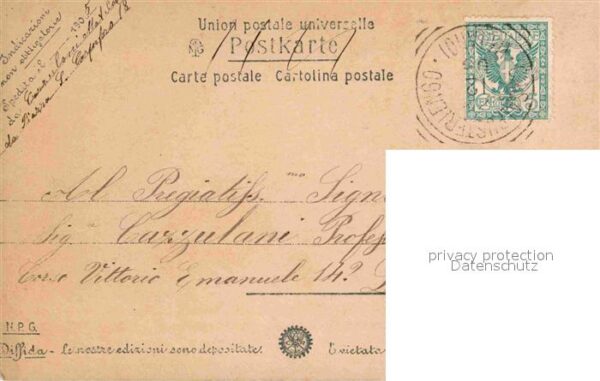 Indicazioni
non obbligatorie
Spedita il 1905
da
da Piazza S.
Union postale universelle
Postkarte
Carte postale Cartolina postale
Al Pregiatiss.mo Sign
Sig. Cazzulani Profess
Corso Vittorio Emanuele 14º
privacy protection
Datenschutz
N.P.G.
Diffida - Le nostre edizioni sono depositate. È vietata